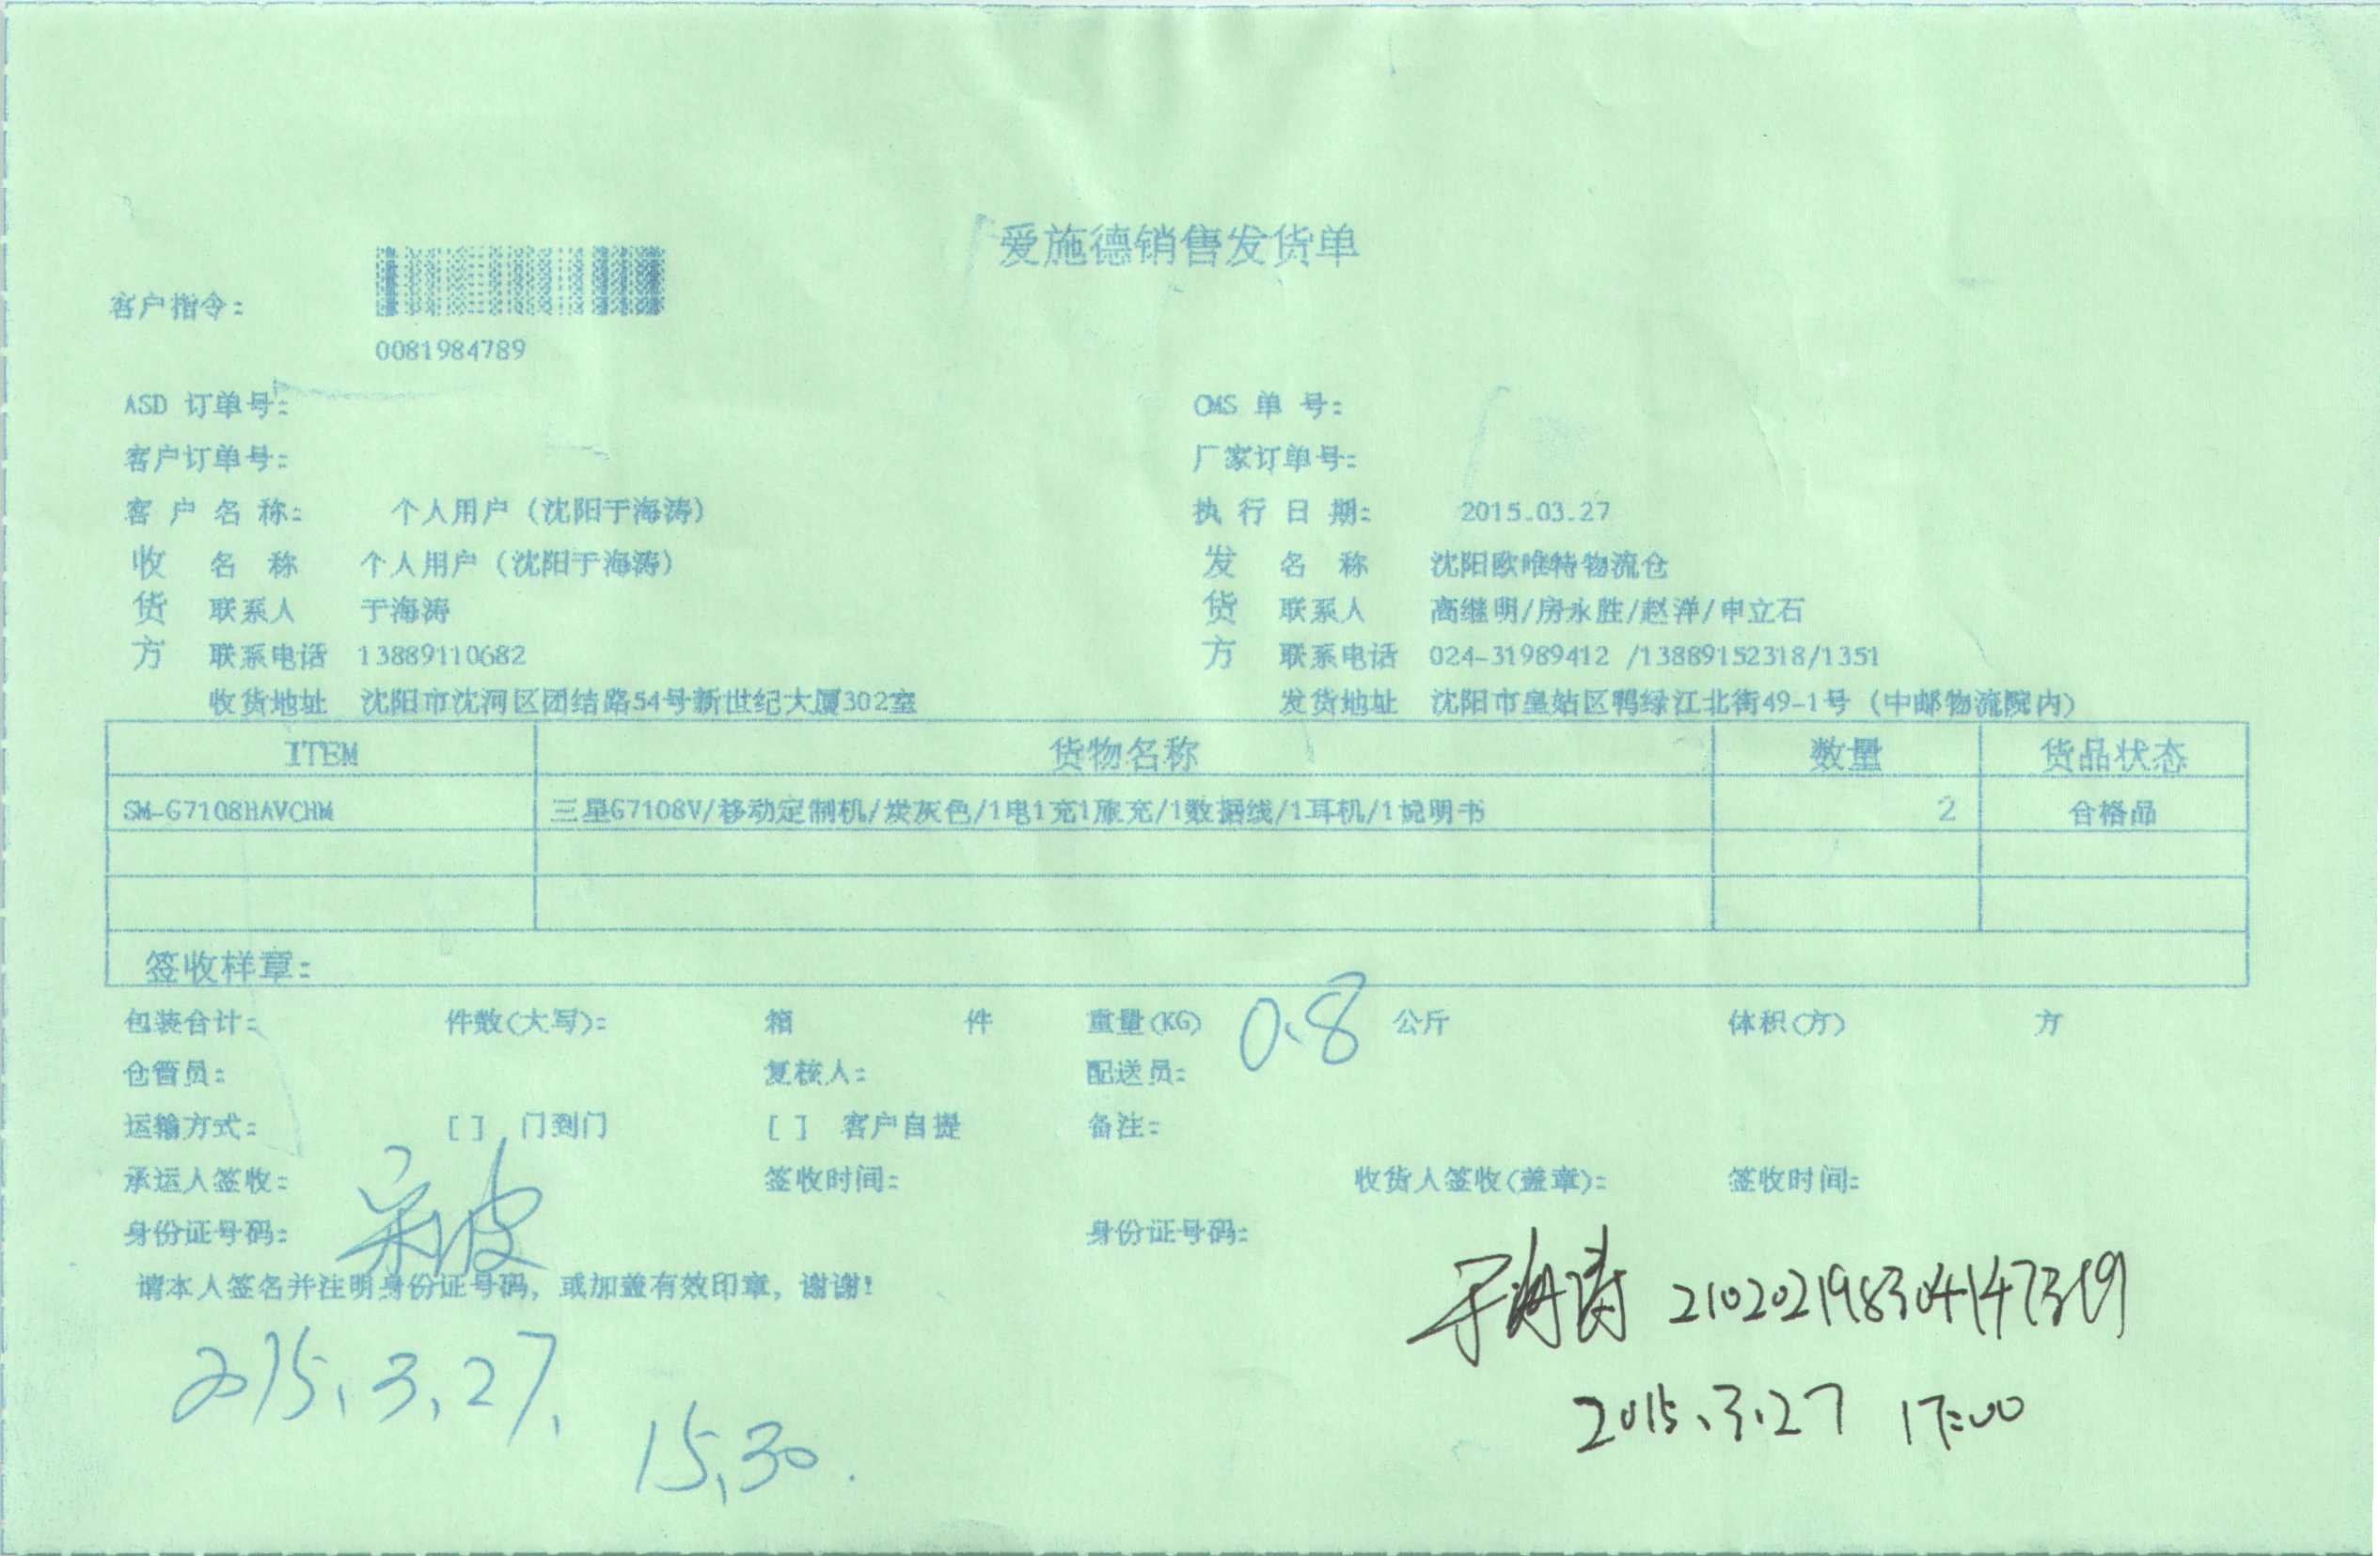 爱施德销售发货单
客户指令:
0081984789
ASD 订单号: OMS 单 号:
客户订单号: 厂家订单号:
客 户 名 称: 个人用户（沈阳于海涛） 执 行 日 期: 2015.03.27
收 名 称 个人用户（沈阳于海涛） 发 名 称 沈阳欧唯特物流仓
货 联系人 于海涛 货 联系人 高继明/房永胜/赵洋/申立石
方 联系电话 13889110682 方 联系电话 024-31989412 /13889152318/1351
收货地址 沈阳市沈河区团结路54号新世纪大厦302室 发货地址 沈阳市皇姑区鸭绿江北街49-1号（中邮物流院内）
ITEM 货物名称 数量 货品状态
SM-G7108HAVCHM 三星G7108V/移动定制机/炭灰色/1电1充1旅充/1数据线/1耳机/1说明书 2 合格品
签收样章:
包装合计: 件数(大写): 箱 件 重量(KG) 0.8 公斤 体积(方) 方
仓管员: 复核人: 配送员:
运输方式: [ ] 门到门 [ ] 客户自提 备注:
承运人签收: 签收时间: 收货人签收(盖章): 签收时间:
身份证号码: 身份证号码:
请本人签名并注明身份证号码，或加盖有效印章，谢谢！
于海涛 210202198304147319
2015.3.27. 15.30.
2015.3.27 17:00